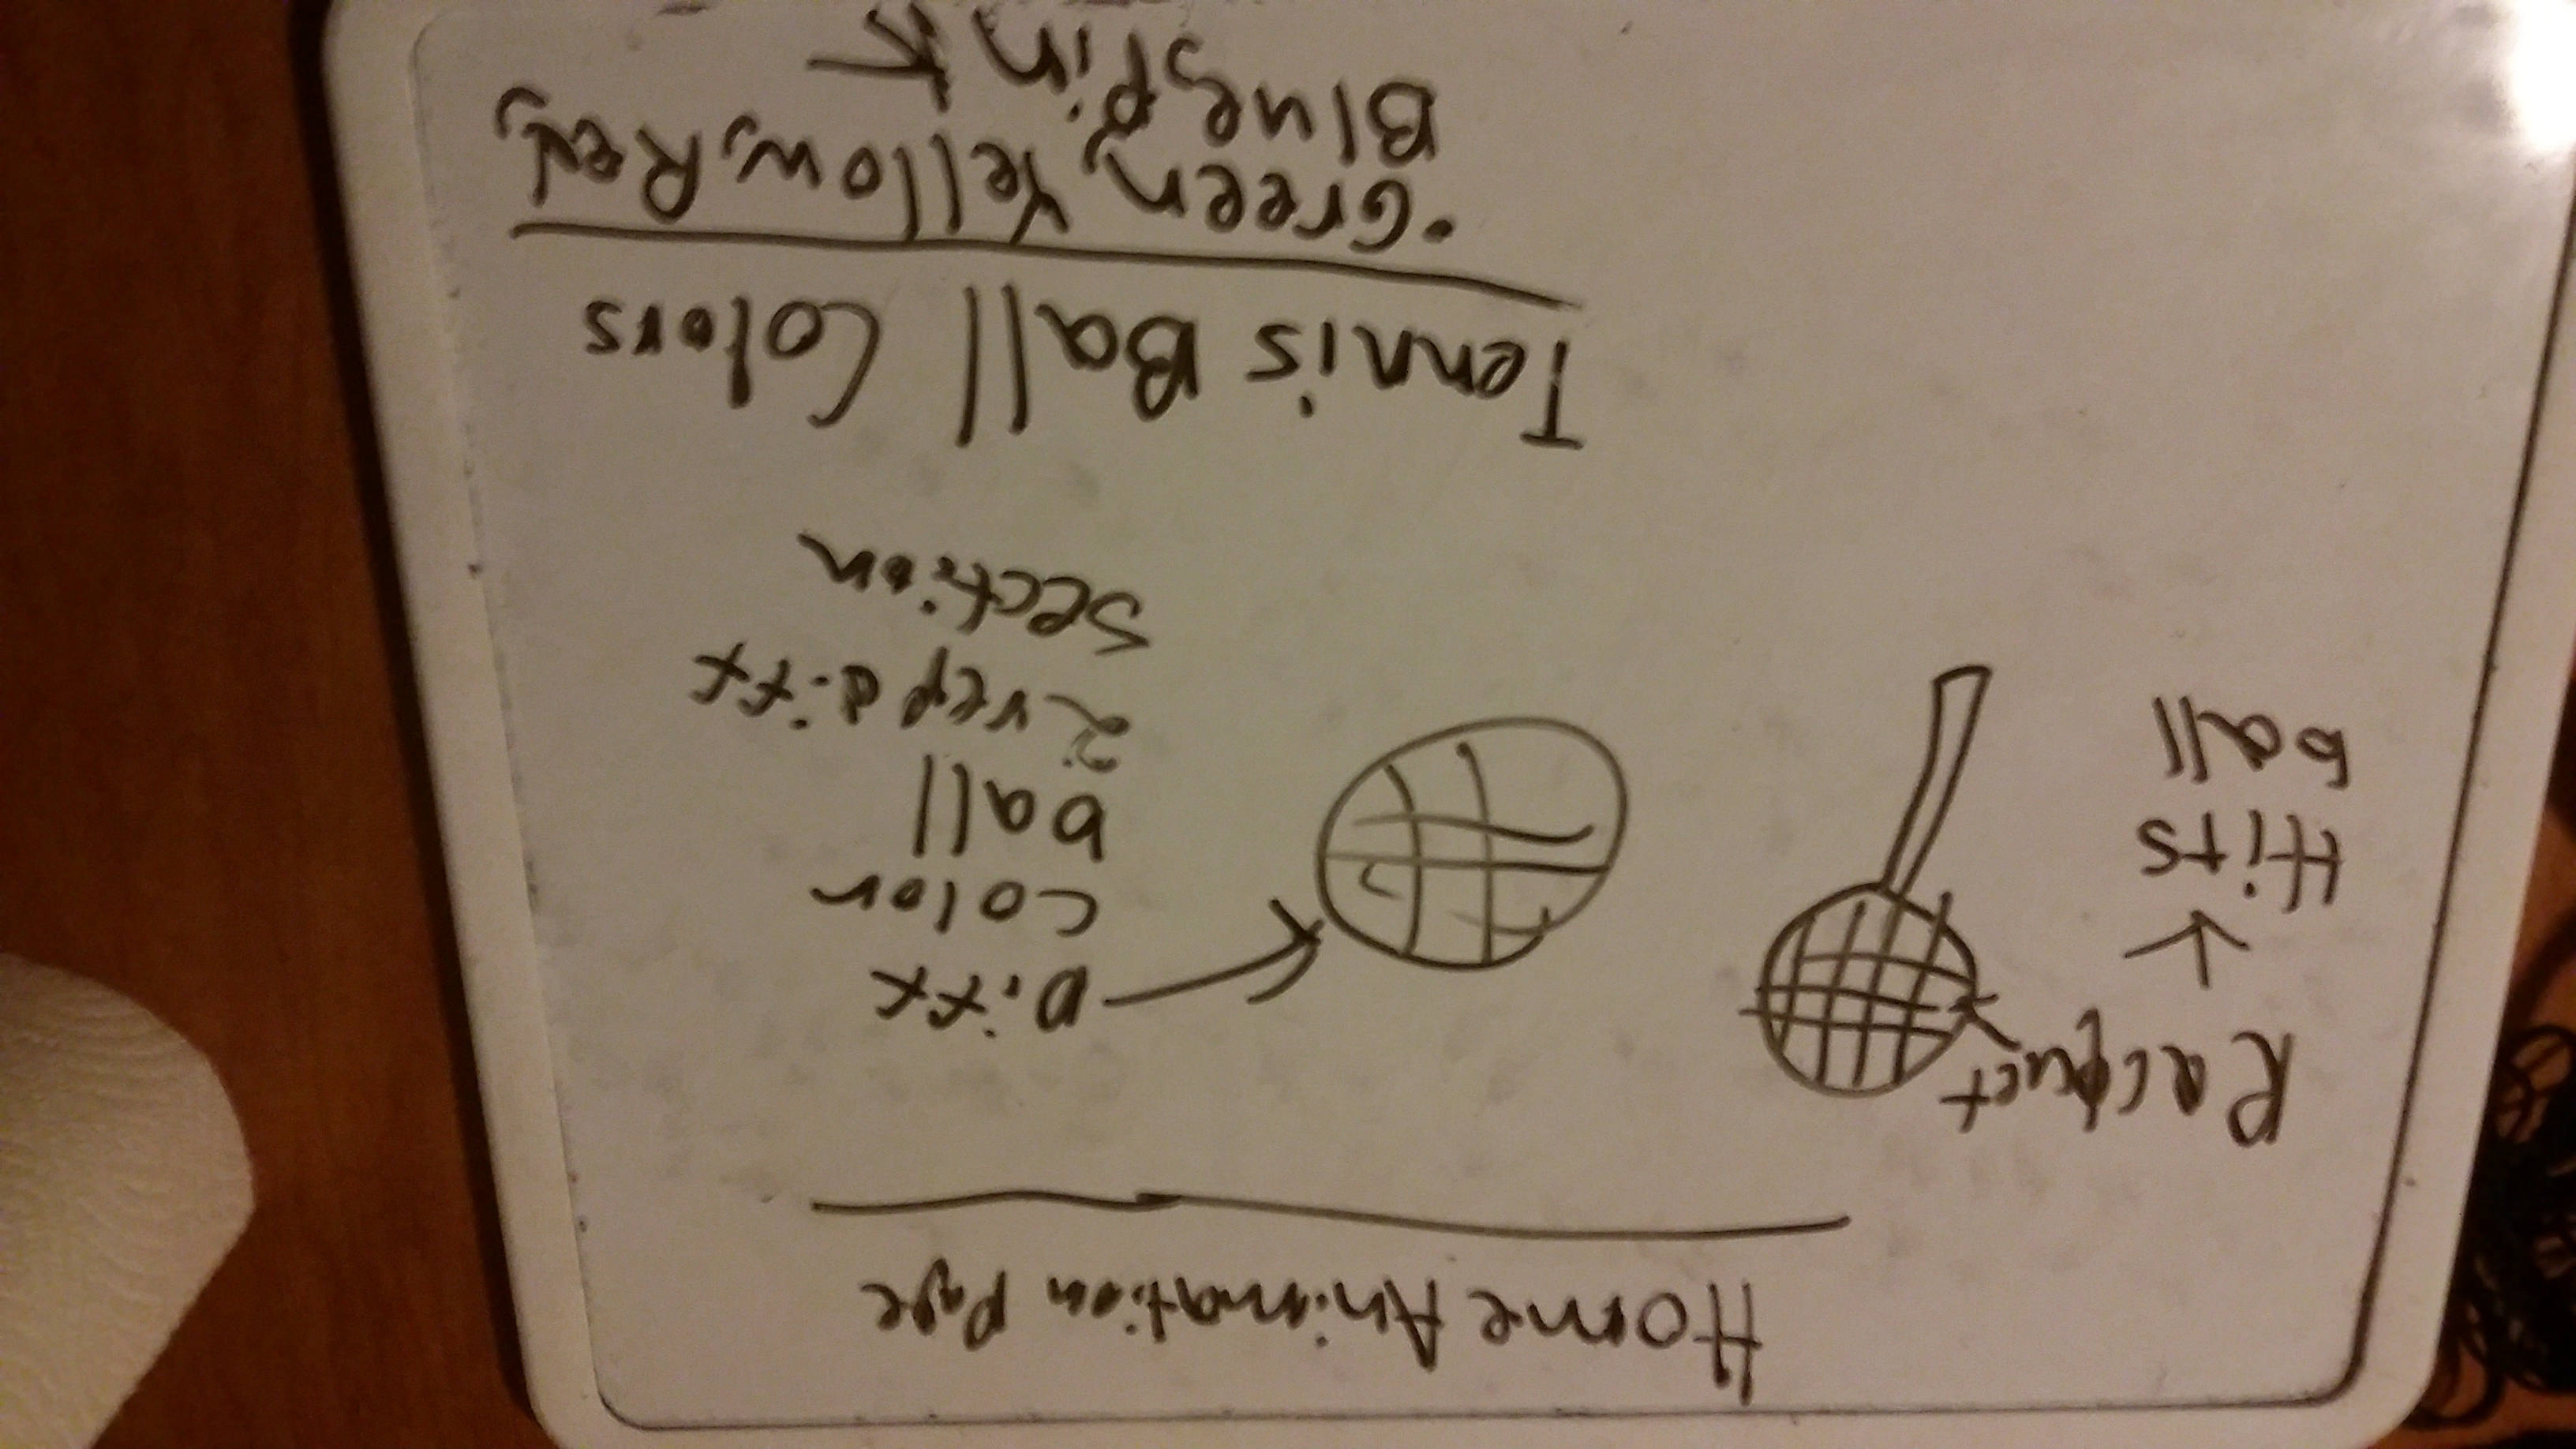 Home Animation Page
Racquet
Hits
ball
Diff
color
ball
2 rep diff
section
Tennis Ball Colors
• Green, Yellow, Red,
Blue, Pink